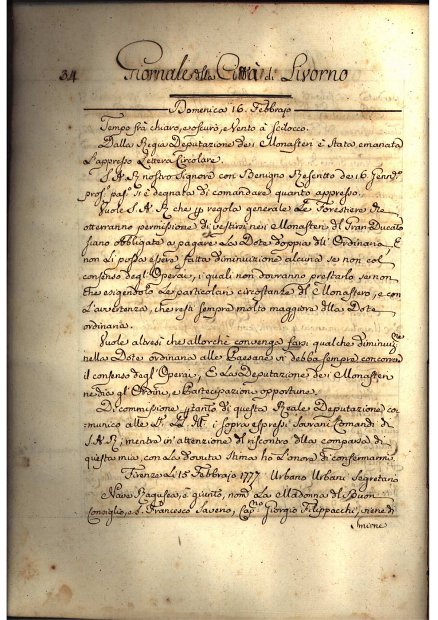 34 Giornale della Città di Livorno
Domenica 16. Febbrajo
Tempo frà chiaro, e oscuro, e Vento à Scilocco.
Dalla Regia Deputazione dei Monasteri è stata emanata
L'appresso Lettera Circolare.
S. A. R. nostro Signore con Benigno Rescritto dei 6. Genn.o
pros.o pas.o si è degnata di comandare quanto appresso.
Vuole S. A. R. che p regola generale Le Forestiere che
otterranno permissione di vestirsi nei Monasteri del Gran Ducato
siano obbligate a pagare La Dote doppia dell'Ordinaria. E
non Li possa essere fatta diminuzione alcuna se non col
consenso degl'Operai, i quali non dovranno prestarlo se non
che esigendolo Le particolari circostanze del Monastero, e con
L'avvertenza, che resti sempre molto maggiore della Dote
ordinaria.
Vuole altresì che allorchè convenga farsi qualche diminuz.ne
nella Dote ordinaria alle Paesane vi debba sempre concorrere
il consenso degl'Operai, E La Deputazione dei Monasteri
ne dia gl'Ordini, e Partecipazioni opportune.
Di commissione p tanto di questa Reale Deputazione co-
munico alle Sig.rie LL. Ill. i sopra espressi Sovrani Comandi di
S. A. R., mentre in attenzione di riscontro della comparsa di
questa mia, con La dovuta stima hò L'onore di confermarmi.
Firenze Li 15 Febbrajo 1777. Urbano Urbani Segretario
Nave Ragusea, è giunto, nom. La Madonna del Buon
Consiglio, e S. Francesco Saverio, Cap.no Giorgio Filippacchi, viene di
Smirne